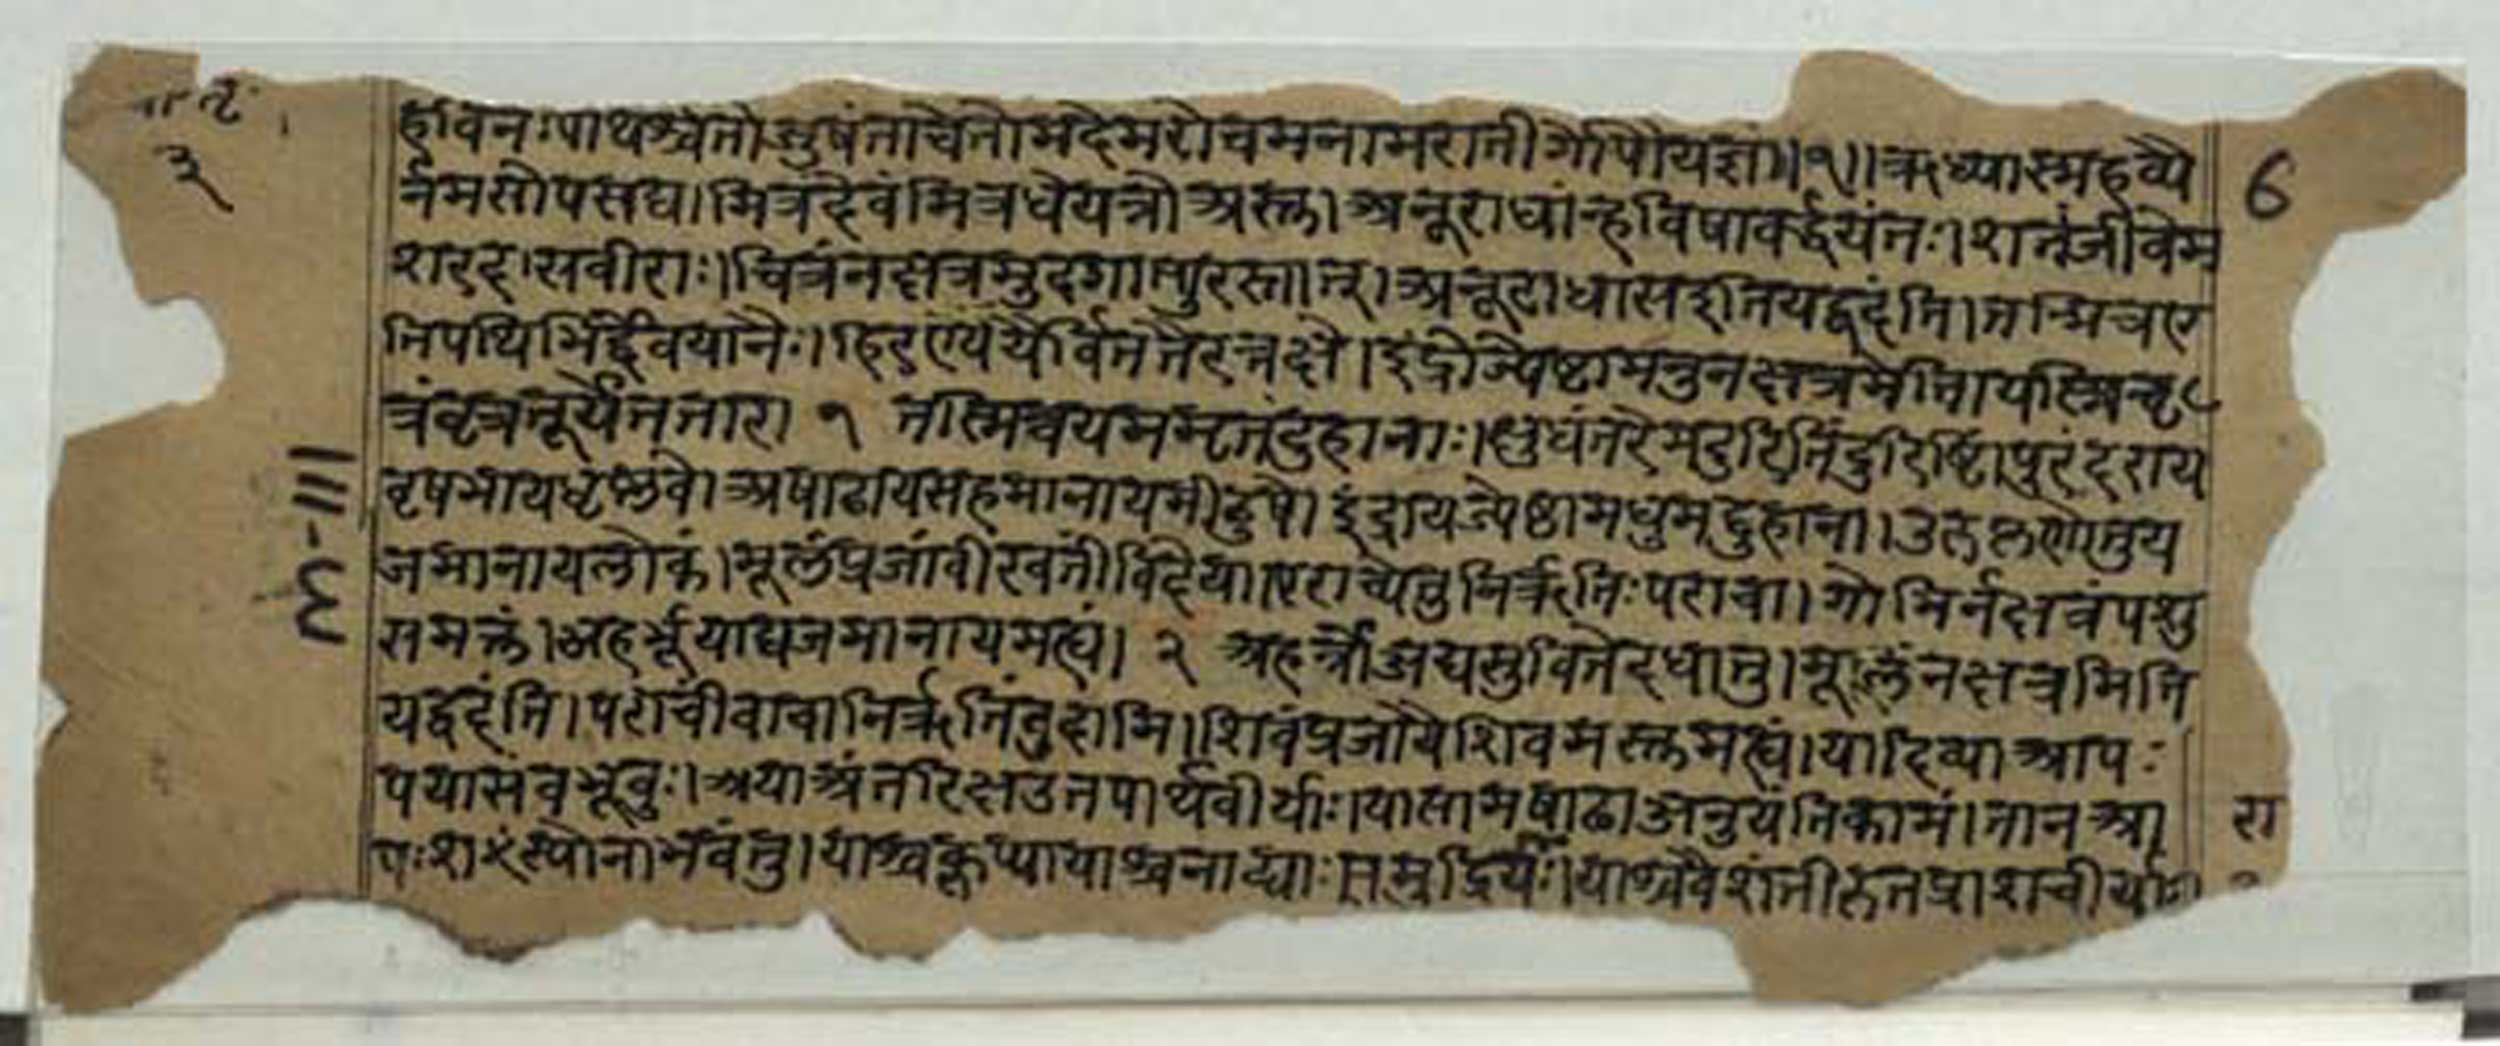 न॰ह॰
३
हविनःपाथश्चेतोजुषंताचेतोमदेमरोचमनामरातीर्गोपौयज्ञं॥१॥ऋध्यास्महव्यै
र्नमसोपसद्य।मित्रंदेवंमित्रधेयंत्रोअस्तु।अनूराधांन्हविषावर्द्धयंतः।शतंजीवेम
शरदः।सवीराः।चित्रंनक्षत्रमुदगात्पुरस्तात्।अनूराधासइतियद्वदंति।तन्मित्रए
तिपथिभिर्द्देवयानैः।हिरण्ययैर्विततैरन्तरिक्षे।इंद्रोज्येष्ठामनुनक्षत्रमेति।यस्मिन्वृ
त्रंवृत्रतूर्येततार। १ तस्मिन्वयममृतंदुहानाः।क्षुधंतरेमदुरितिंदुरिष्टिं।पुरंदराय
वृषभायधृष्णवे।अषाढायसहमानायमीढुषे।इंद्रायज्येष्ठामधुमद्दुहाना।उरुंकृणोतुय
जमानायलोकं।मूलंप्रजांवीरवतींविदेय।पराच्येतुनिर्ऋतिःपराचा।गोभिर्नक्षत्रंपशु
समक्तं।अहर्भूयाद्यजमानायमह्यं। २ अहर्न्नोअद्यसुवितेदधातु।मूलंनक्षत्रमिति
यद्वदंति।पराचींवाचानिर्ऋतिंनुदामि।शिवंप्रजायैशिवमस्तुमह्यं।यादिव्याआपः
पयसासंबभूवुः।याअंतरिक्षउतपार्थवीर्याः।यासामषाढाअनुयंतिकामं।तानआ
पःशꣳस्योनाभवंतु।याश्चकूप्यायाश्चनाद्याःसमुद्रियाः।याश्चवैशंतीरुतप्राशचीर्याः।
6
रा
३-III